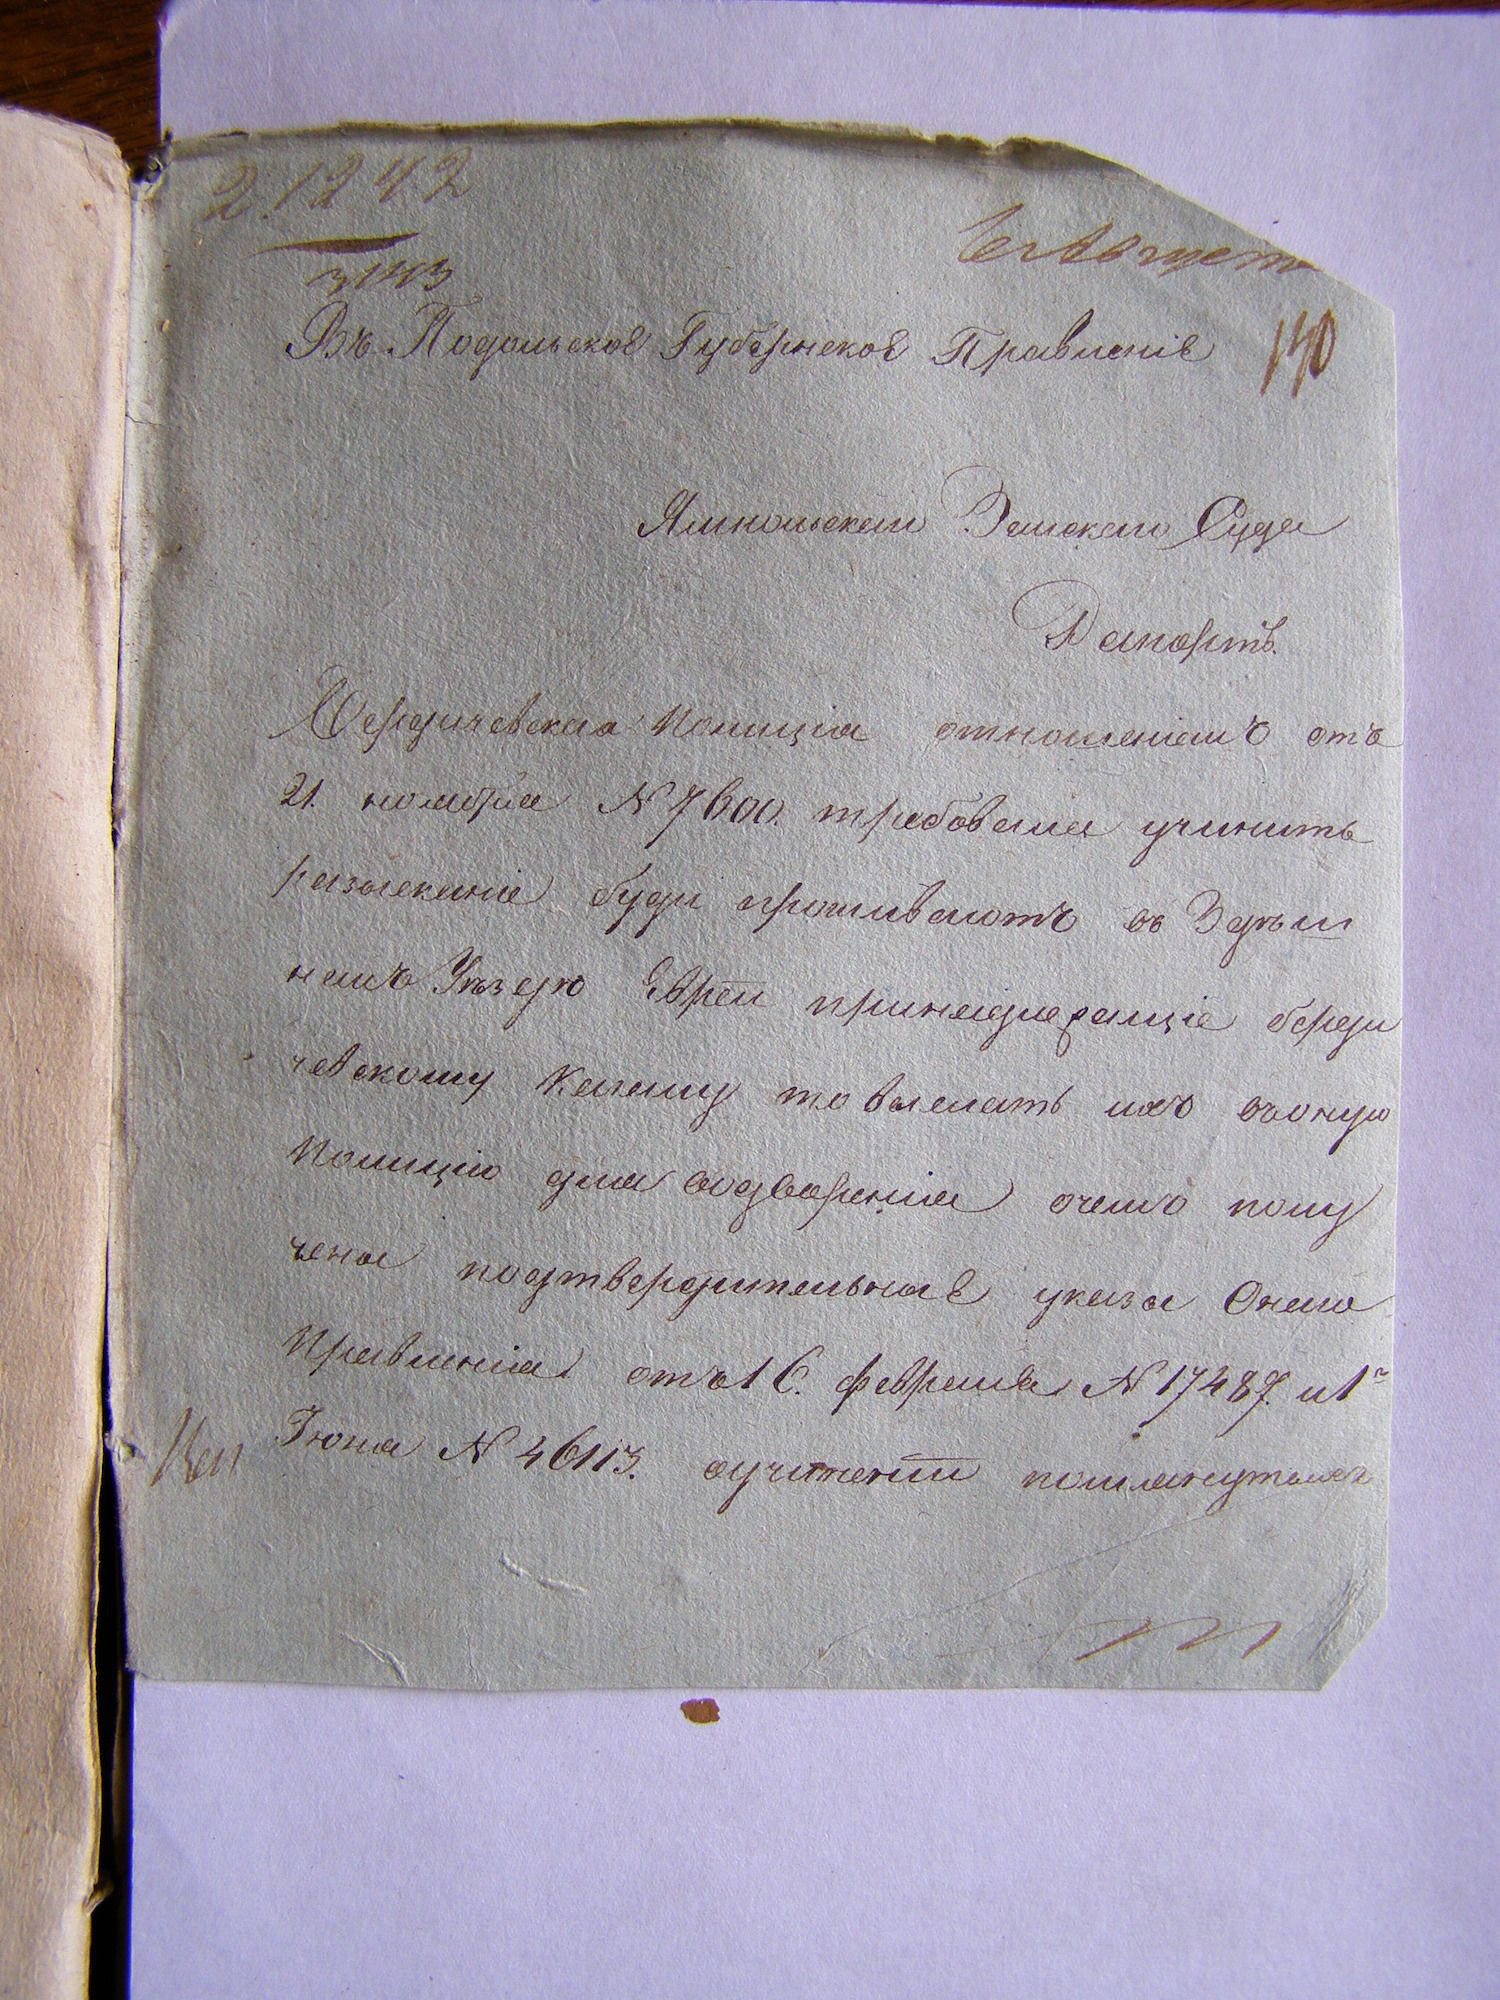 21242
Августа
Въ Подольское Губернское Правленіе
140
Ямпольскаго Земскаго Суда
Рапортъ.
Бердичевская Полиція отношеніемъ отъ
21. ноября N 7600. требовала учинить
разысканіе буди проживаютъ въ Здѣш
немъ Уѣздѣ Евреи принадлежащіе берди
чевскому Кагалу то выслать ихъ въоную
Полицію для водворенія очемъ полу
чены подтвердительные указы Онаго
Правленія отъ 16. февраля N 17487. и 1го
Іюня N 46113. оучиненіи помянутыхъ